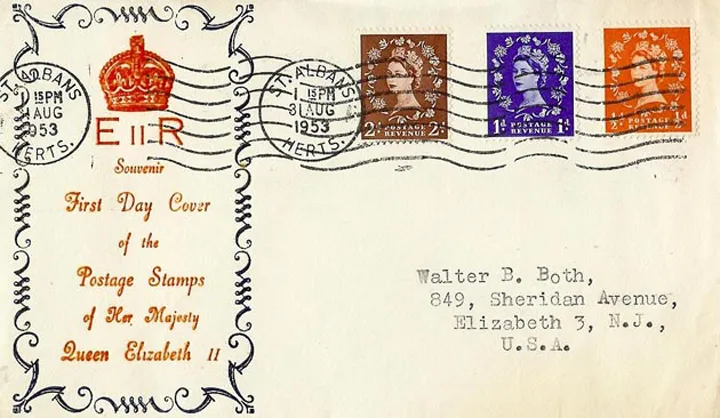 ST. ALBANS
1 15PM
31 AUG
1953
HERTS.
E II R
Souvenir
First Day Cover
of the
Postage Stamps
of Her Majesty
Queen Elizabeth II
ST. ALBANS
1 15PM
31 AUG
1953
HERTS.
2D POSTAGE REVENUE 2D
1D POSTAGE REVENUE 1D
½D POSTAGE REVENUE ½D
Walter B. Both,
849, Sheridan Avenue,
Elizabeth 3, N.J.,
U.S.A.